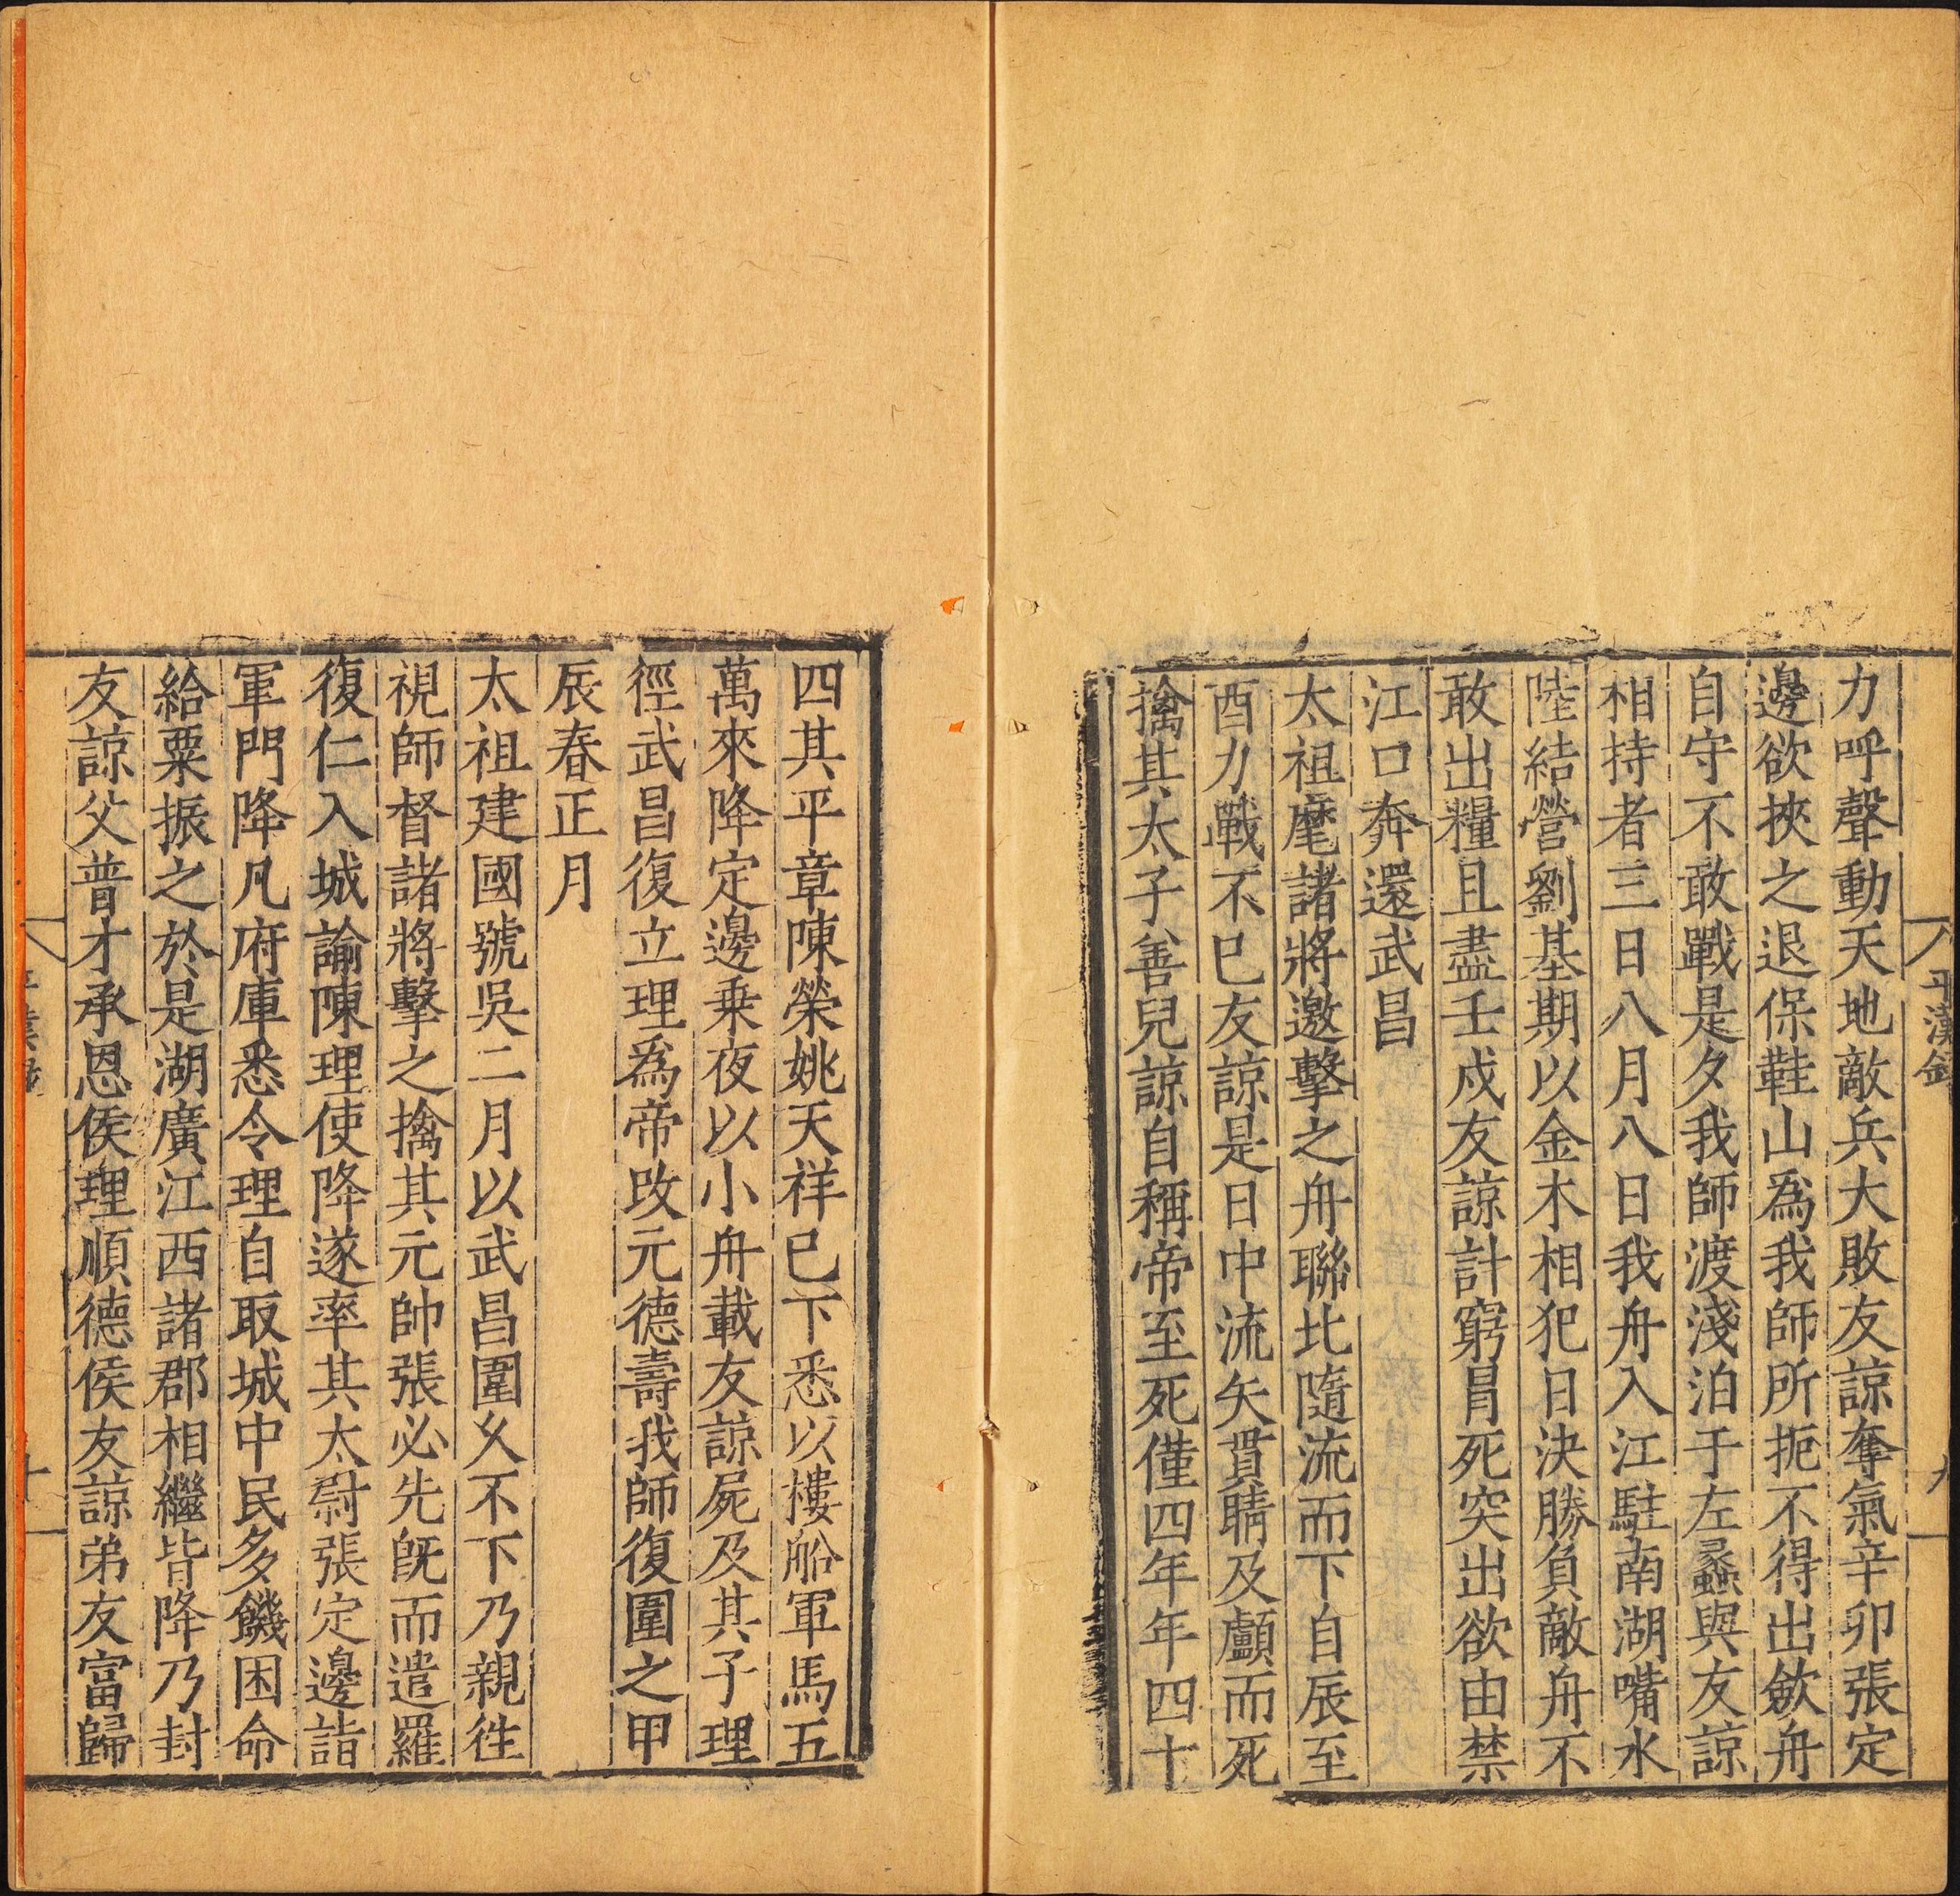 平漢錄
九
力呼聲動天地敵兵大敗友諒奪氣辛卯張定
邊欲挾之退保鞋山爲我師所扼不得出斂舟
自守不敢戰是夕我師渡淺泊于左蠡與友諒
相持者三日八月八日我舟入江駐南湖嘴水
陸結營劉基期以金木相犯日決勝負敵舟不
敢出糧且盡壬戍友諒計窮冒死突出欲由禁
江口奔還武昌
太祖麾諸將邀擊之舟聯比隨流而下自辰至
酉力戰不巳友諒是日中流矢貫睛及顱而死
擒其太子善兒諒自稱帝至死僅四年年四十
四其平章陳榮姚天祥巳下悉以樓船軍馬五
萬來降定邊乗夜以小舟載友諒屍及其子理
徑武昌復立理爲帝改元德壽我師復圍之甲
辰春正月
太祖建國號吳二月以武昌圍乆不下乃親徃
視師督諸將擊之擒其元帥張必先旣而遣羅
復仁入城諭陳理使降遂率其太尉張定邊詣
軍門降凡府庫悉令理自取城中民多饑困命
給粟振之於是湖廣江西諸郡相繼皆降乃封
友諒父普才承恩侯理順德侯友諒弟友富歸
十